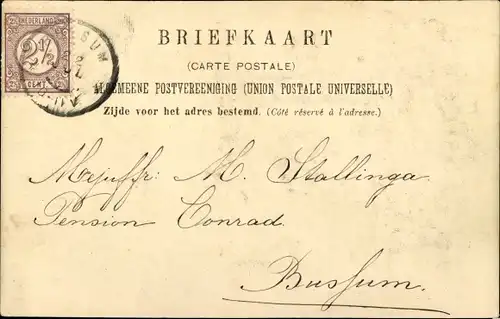 NEDERLAND
2½
CENT
SUM
BRIEFKAART
(CARTE POSTALE)
ALGEMEENE POSTVEREENIGING (UNION POSTALE UNIVERSELLE)
Zijde voor het adres bestemd. (Côté réservé à l'adresse.)
Mejuffr: M. Stallinga.
Pension Conrad.
Bussum.